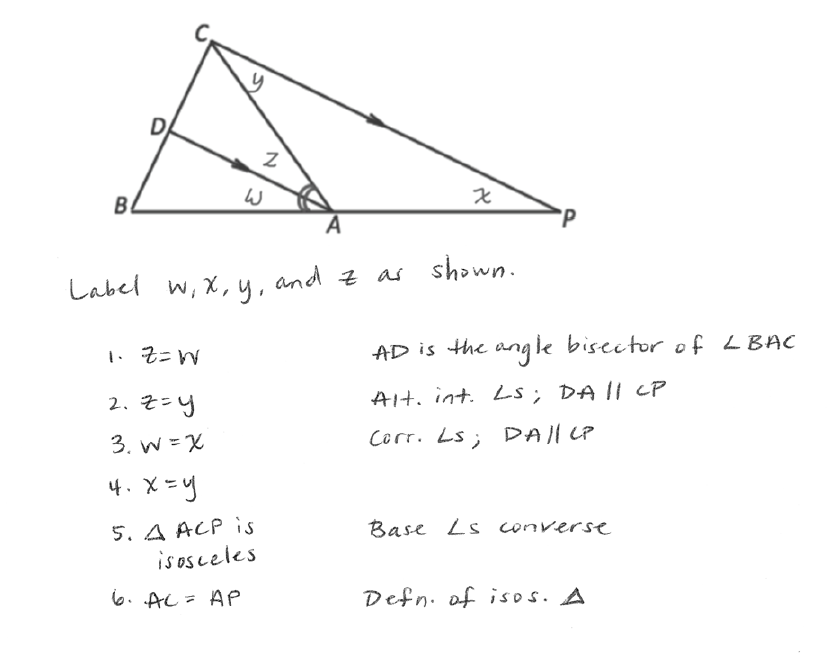 C
y
D
z
B
w
x
A
P
Label w, x, y, and z as shown.
1. z = w AD is the angle bisector of ∠BAC
2. z = y Alt. int. ∠s; DA || CP
3. w = x Corr. ∠s; DA || CP
4. x = y
5. △ ACP is Base ∠s converse
isosceles
6. AC = AP Defn. of isos. △